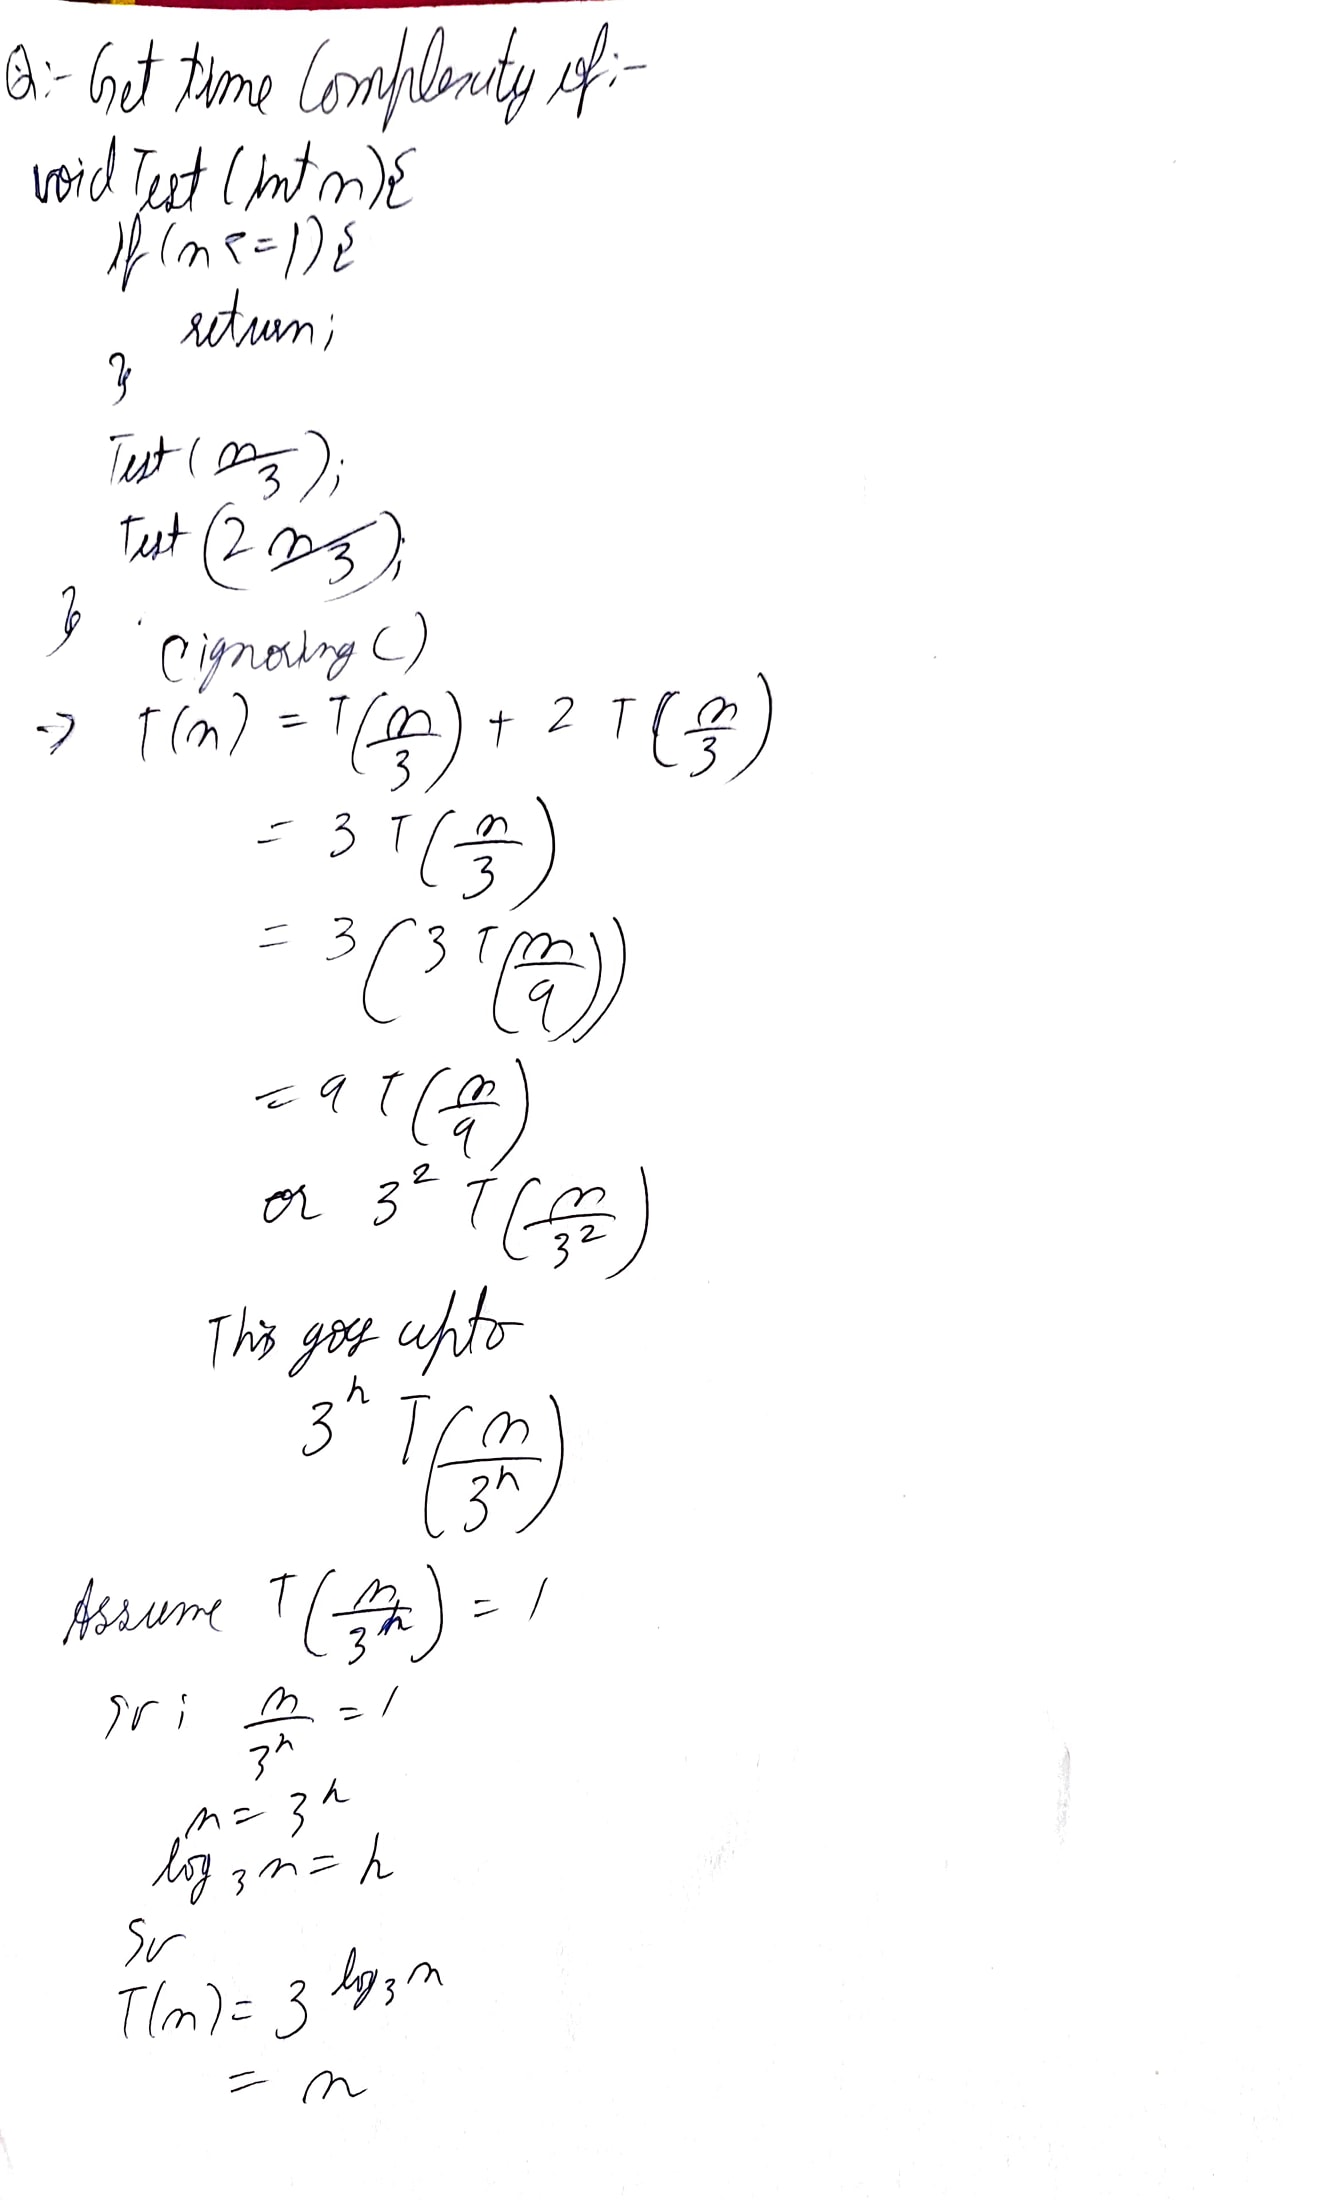 Q:- Get time Complexity of:-
void Test (int n){
If (n <= 1) {
return;
}
Test (n/3);
Test (2n/3);
}
(ignoring C)
=> T(n) = T(n/3) + 2 T(n/3)
= 3 T(n/3)
= 3 (3 T(n/9))
= 9 T(n/9)
or 3² T(n/3²)
This goes upto
3^h T(n/3^h)
Assume T(n/3^h) = 1
So; n/3^h = 1
n = 3^h
log₃ n = h
So
T(n) = 3^(log₃ n)
= n